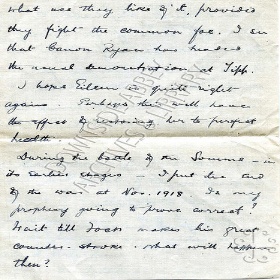 what use they like of it, provided
they fight the common foe. I see
that Canon Ryan has headed
the usual demonstration at Tipp.
I hope Eileen is quite right
again. Perhaps this will have
the effect of restoring her to perfect
health.
During the battle of the Somme - in
its earlier stages - I put the end
of the war at Nov. 1918. Is my
prophecy going to prove correct?
Wait till Foch makes his great
counter-stroke. What will happen
then?